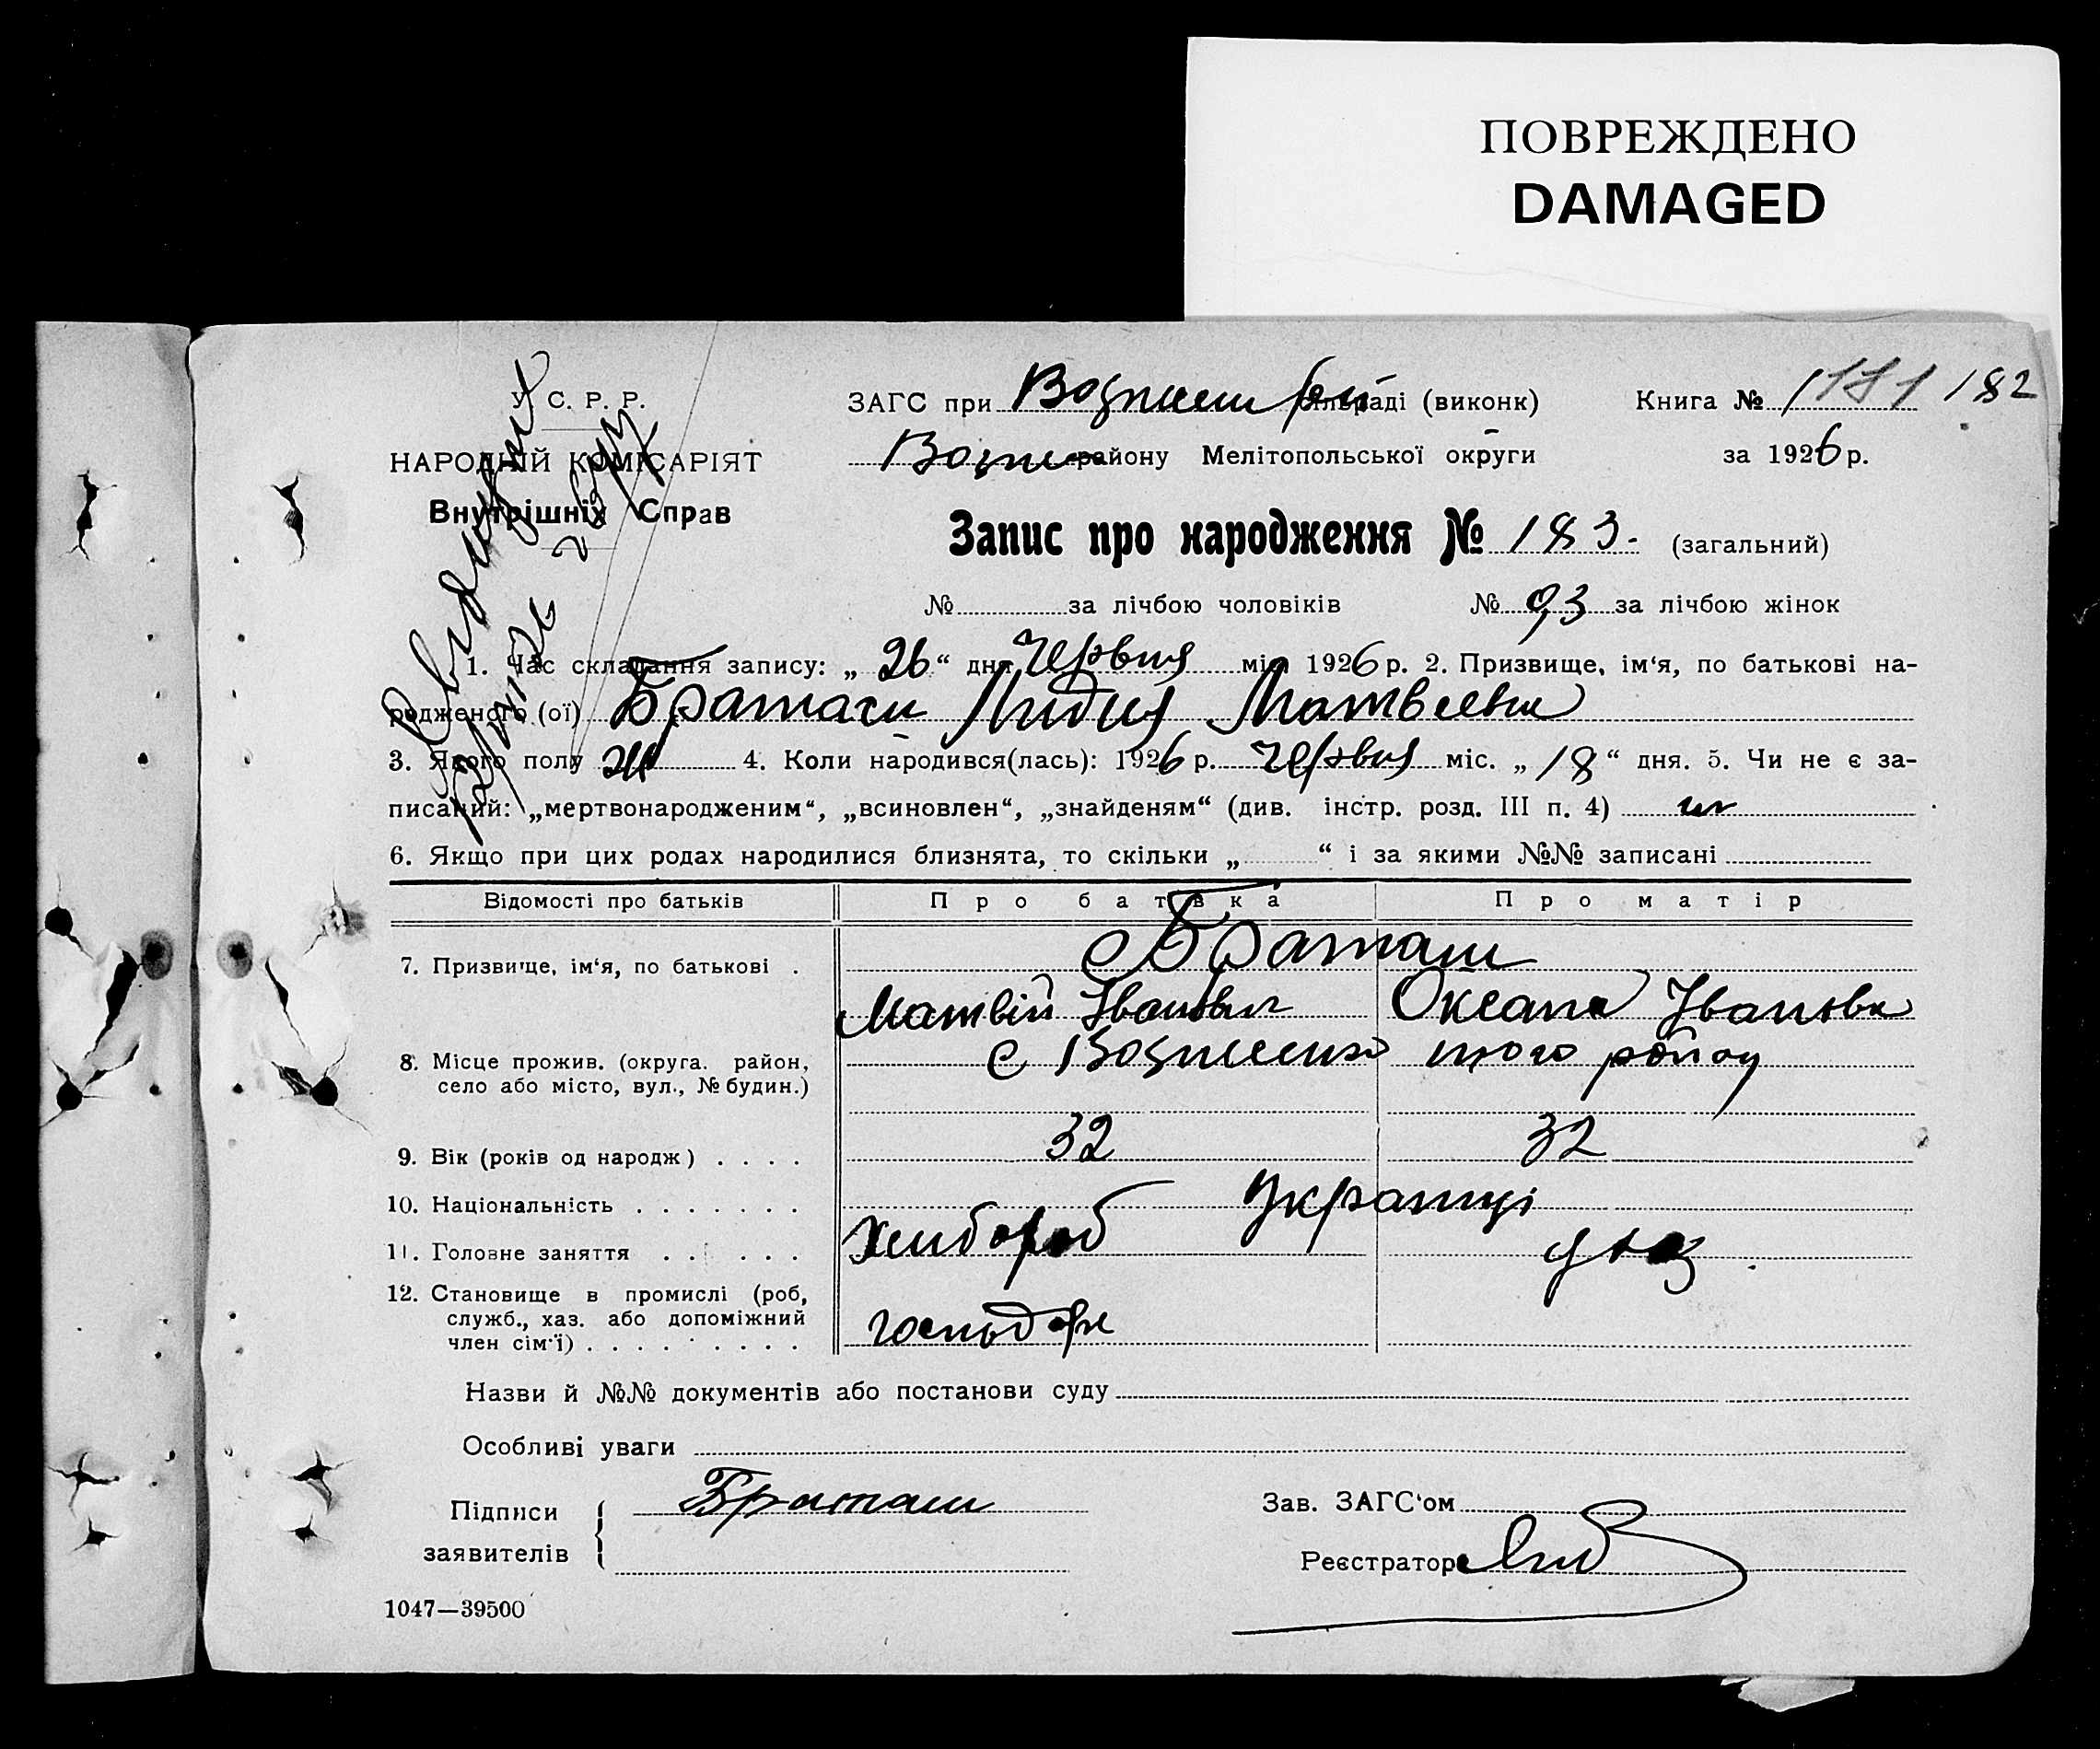 ПОВРЕЖДЕНО
DAMAGED
У. С. Р. Р.
НАРОДНІЙ КОМІСАРІЯТ
Внутрішніх Справ
ЗАГС при сільраді (виконк)
Книга № 182
району Мелітопольської округи
за 1926 р.
Запис про народження № 183. (загальний)
№ за лічбою чоловіків № 93 за лічбою жінок
1. Час складання запису: „26“ дня Червня міс. 1926 р. 2. Призвище, ім‘я, по батькові на-
родженого (ої) Браташ Лидия Матвеевна
3. Якого полу ж 4. Коли народився(лась): 1926 р. Червня міс. „18“ дня. 5. Чи не є за-
писаний: „мертвонародженим“, „всиновлен“, „знайденям“ (див. інстр. розд. III п. 4) ні
6. Якщо при цих родах народилися близнята, то скільки „ “ і за якими №№ записані
Відомості про батьків
Про батька
Про матір
7. Призвище, ім‘я, по батькові .
Браташ
Матвій Іванович
Оксана Іванівна
8. Місце прожив. (округа. район,
село або місто, вул., № будин.)
с Вознесенко того району
9. Вік (років од народж) . . . .
32
32
10. Національність . . . . . . .
Українці
11. Головне заняття . . . . . .
Хлібороб
12. Становище в промислі (роб,
служб., хаз. або допоміжний
член сім‘ї) . . . . . . . . .
господар
Назви й №№ документів або постанови суду
Особливі уваги
Підписи
заявителів
Браташ
Зав. ЗАГС‘ом
Реєстратор
1047—39500